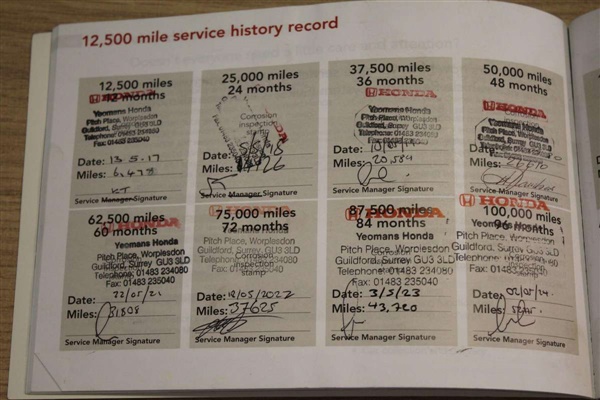 12,500 mile service history record
12,500 miles
12 months
HONDA
Yeomans Honda
Pitch Place, Worplesdon
Guildford, Surrey GU3 3LD
Telephone: 01483 234080
Fax: 01483 235040
Date: 13.5.17
Miles: 6,478
KT
Service Manager Signature
25,000 miles
24 months
Corrosion
inspection
stamp
Date:
Miles:
Service Manager Signature
37,500 miles
36 months
HONDA
Yeomans Honda
Pitch Place, Worplesdon
Guildford, Surrey GU3 3LD
Telephone: 01483 234080
Fax: 01483 235040
Date:
Miles: 20,584
Service Manager Signature
50,000 miles
48 months
HONDA
Yeomans Honda
Pitch Place, Worplesdon
Guildford, Surrey GU3 3LD
Date:
Miles:
Service Manager Signature
62,500 miles
60 months
HONDA
Yeomans Honda
Pitch Place, Worplesdon
Guildford, Surrey GU3 3LD
Telephone: 01483 234080
Fax: 01483 235040
Date: 22/05/21
Miles: 31808
Service Manager Signature
75,000 miles
72 months
Yeomans Honda
Pitch Place, Worplesdon
Guildford, Surrey GU3 3LD
Corrosion
inspection
stamp
Date: 18/05/2022
Miles: 37625
Service Manager Signature
87,500 miles
HONDA
84 months
Yeomans Honda
Pitch Place, Worplesdon
Guildford, Surrey GU3 3LD
Telephone: 01483 234080
Fax: 01483 235040
Date: 3/5/23
Miles: 43,720
Service Manager Signature
HONDA
100,000 miles
96 months
Yeomans Honda
Pitch Place, Worplesdon
Guildford, Surrey GU3 3LD
Telephone: 01483 234080
Fax: 01483 235040
Date:
Miles:
Service Manager Signature